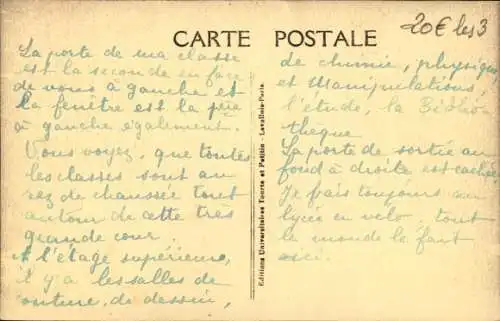 CARTE POSTALE
20€ les 3
La porte de ma classe
est la seconde en face
de vous à gauche et
la fenêtre est la
à gauche également.
Vous voyez, que toutes
les classes sont au
rez de chaussée tout
autour de cette très
grande cour.
A l'étage supérieure,
il y a les salles de
couture, de dessin,
Editions Universitaires Tourte et Petitin - Levallois-Paris
de chimie, physique
et Manipulations,
l'étude, la Biblio
thèque
La porte de sortie au
fond à droite est cachée
Je fais toujours au
lycée en vélo tout
le monde le fait